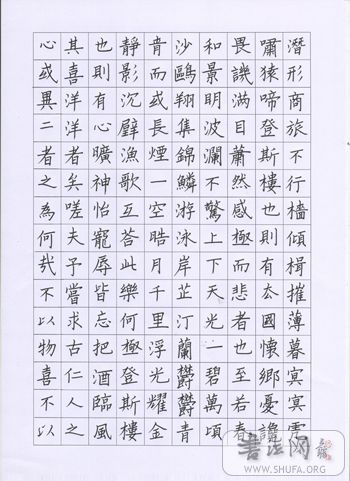 潛形商旅不行檣傾楫摧薄暮冥冥虎
嘯猿啼登斯樓也則有去國懷鄉憂讒
畏譏滿目蕭然感極而悲者也至若春
和景明波瀾不驚上下天光一碧萬頃
沙鷗翔集錦鱗游泳岸芷汀蘭鬱鬱青
青而或長煙一空晧月千里浮光耀金
靜影沉璧漁歌互荅此樂何極登斯樓
也則有心曠神怡寵辱皆忘把酒臨風
其喜洋洋者矣嗟夫子嘗求古仁人之
心或異二者之為何哉不以物喜不以
书法网
WWW.SHUFA.ORG